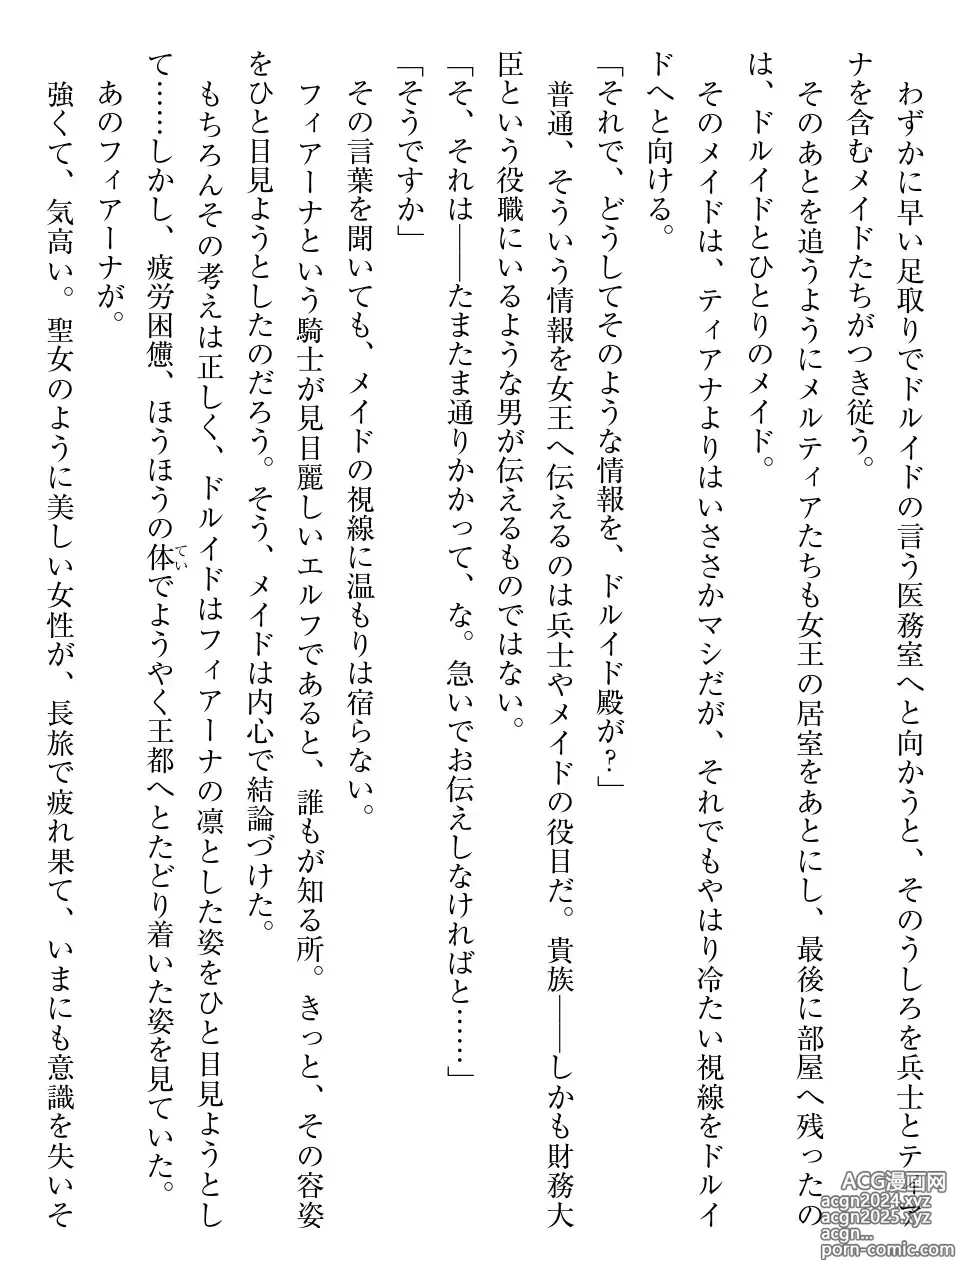 わずかに早い足取りでドルイドの言う医務室へと向かうと、そのうしろを兵士とティア
ナを含むメイドたちがつき従う。
そのあとを追うようにメルティアたちも女王の居室をあとにし、最後に部屋へ残ったの
は、ドルイドとひとりのメイド。
そのメイドは、ティアナよりはいささかマシだが、それでもやはり冷たい視線をドルイ
ドへと向ける。
「それで、どうしてそのような情報を、ドルイド殿が？」
普通、そういう情報を女王へ伝えるのは兵士やメイドの役目だ。貴族――しかも財務大
臣という役職にいるような男が伝えるものではない。
「そ、それは――たまたま通りかかって、な。急いでお伝えしなければと……」
「そうですか」
その言葉を聞いても、メイドの視線に温もりは宿らない。
フィアーナという騎士が見目麗しいエルフであると、誰もが知る所。きっと、その容姿
をひと目見ようとしたのだろう。そう、メイドは内心で結論づけた。
もちろんその考えは正しく、ドルイドはフィアーナの凛とした姿をひと目見ようとし
て……しかし、疲労困憊、ほうほうの体でようやく王都へとたどり着いた姿を見ていた。
てい
あのフィアーナが。
強くて、気高い。聖女のように美しい女性が、長旅で疲れ果て、いまにも意識を失いそ
ACG漫画网
acgn2024.xyz
acgn2025.xyz
acgn...
porn-comic.com